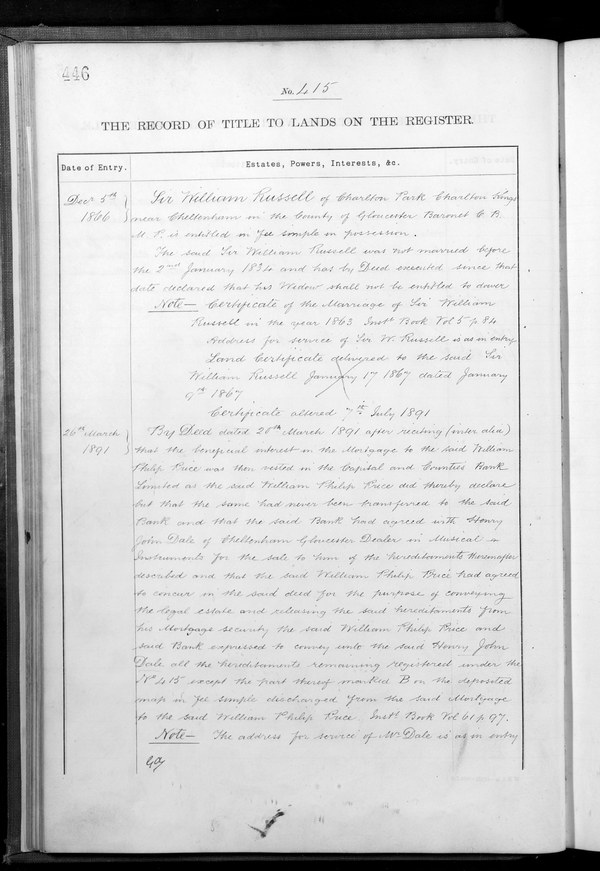 446
No. 415
THE RECORD OF TITLE TO LANDS ON THE REGISTER.
Date of Entry.
Estates, Powers, Interests, &c.
Decr 5th
1866
Sir William Russell of Charlton Park Charlton Kings
near Cheltenham in the County of Gloucester Baronet C. B.
M. P. is entitled in Fee simple in possession.
The said Sir William Russell was not married before
the 2nd January 1834 and has by Deed executed since that
date declared that his Widow shall not be entitled to dower
Note – Certificate of the Marriage of Sir William
Russell in the year 1863 Instt Book Vol 5 p 84
Address for service of Sir W. Russell is as in entry
Land Certificate delivered to the said Sir
William Russell January 17 1867 dated January
9th 1867
Certificate altered 7th July 1891
26th March
1891
By Deed dated 20th March 1891 after reciting (inter alia)
that the beneficial interest in the Mortgage to the said William
Philip Price was then vested in the Capital and Counties Bank
Limited as the said William Philip Price did thereby declare
but that the same had never been transferred to the said
Bank and that the said Bank had agreed with Henry
John Dale of Cheltenham Gloucester Dealer in Musical
Instruments for the sale to him of the hereditaments thereinafter
described and that the said William Philip Price had agreed
to concur in the said deed for the purpose of conveying
the legal estate and releasing the said hereditaments from
his Mortgage security the said William Philip Price and
said Bank expressed to convey unto the said Henry John
Dale all the hereditaments remaining registered under the
No 415 except the part thereof marked B on the deposited
map in fee simple discharged from the said Mortgage
to the said William Philip Price. Instt Book Vol 61 p 97.
Note – The address for service of Mr Dale is as in entry